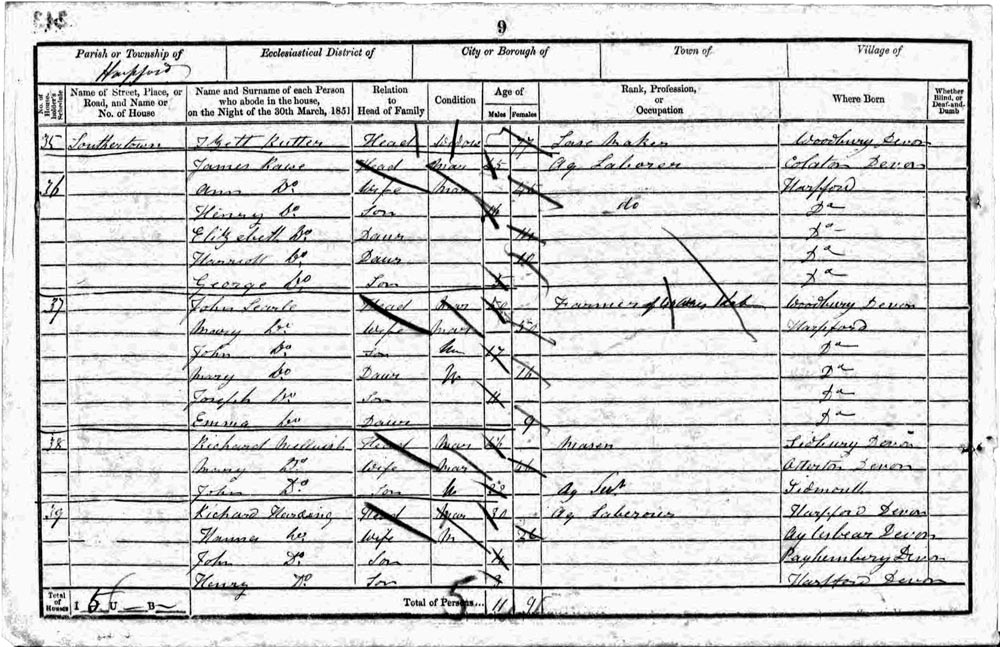 9
Parish or Township of Ecclesiastical District of City or Borough of Town of Village of
Harpford
No. of House-holder's Schedule Name of Street, Place, or Road, and Name or No. of House Name and Surname of each Person who abode in the house, on the Night of the 30th March, 1851 Relation to Head of Family Condition Age of Males Females Rank, Profession, or Occupation Where Born Whether Blind, or Deaf-and-Dumb
35 Southertown Rutter Head Widow 77 Lace Maker Woodbury Devon
James Head Mar 45 Ag Laborer Colaton Devon
36 Ann Do Wife Mar Harpford
Henry Do Son do Do
Elizabeth Do Daur Do
Harriott Do Daur 10 Do
George Do Son Do
37 John Searle Head Mar 50 Farmer of Woodbury Devon
Mary Do Wife Mar 50 Harpford
John Do Son Un 17 Do
Mary Do Daur U 16 Do
Joseph Do Son 11 Do
Emma Do Daur 9 Do
38 Richard Head Mar Mason Sidbury Devon
Mary Do Wife Mar Otterton Devon
John Do Son U Ag Sidmouth
39 Richard Harding Head Mar 30 Ag Laborer Harpford Devon
Do Wife M 26 Aylesbear Devon
John Do Son Payhembury Devon
Henry Do Son Harpford Devon
Total of Houses I 5 U B Total of Persons... 11 9